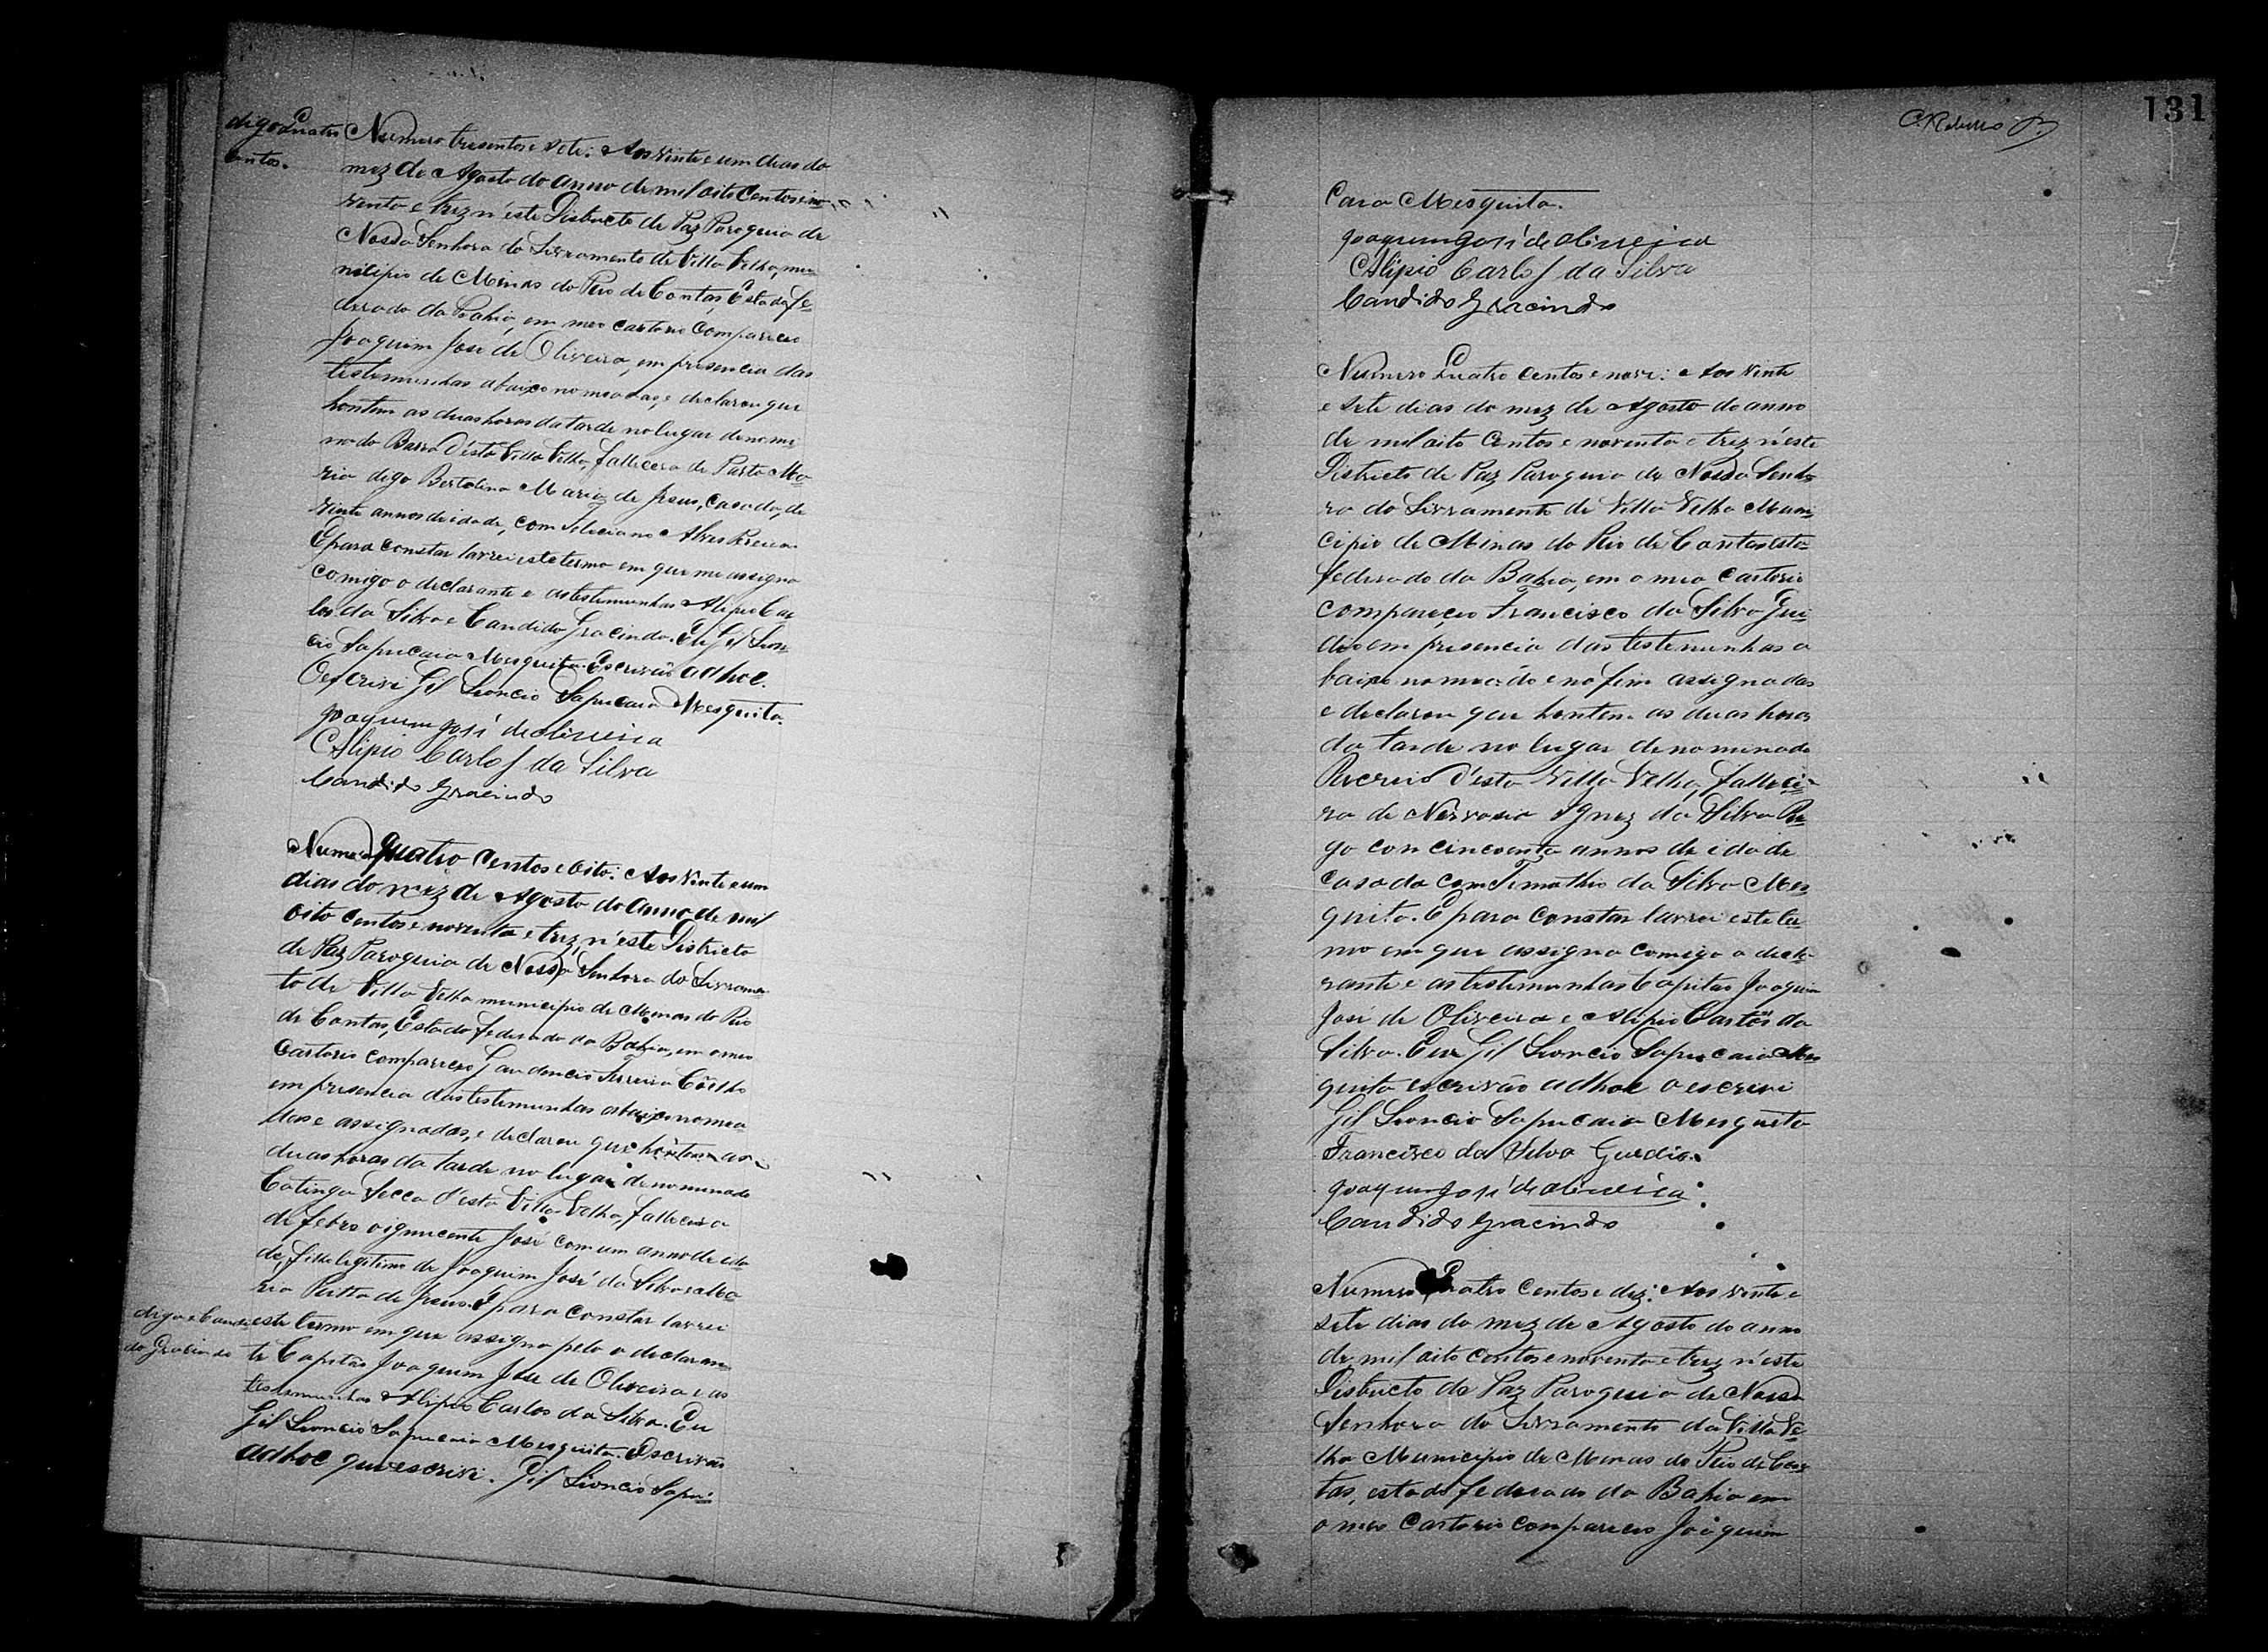 digo Quatro
centos.
Numero tresentos e sete: Aos vinte e um dias do
mez de Agosto do anno de mil oito centos e no-
venta e trez n'este Districto de Paz Paroquia de
Nossa Senhora do Livramento de Villa Velha, mu-
nicipio de Minas do Rio de Contas, Estado fe-
derado da Bahia, em meo cartorio compareceo
Joaquim José de Oliveira, em presencia das
testemunhas abaixo nomeadas, e declarou que
hontem as duas horas da tarde no lugar denomi-
nado Barra d'esta Villa Velha, fallecera de Parto Ma-
ria digo Bertolina Maria de Jesus, casada, de
vinte annos de idade, com Feliciano Alves Pereira
E para constar lavrei este termo em que me assigno
comigo o declarante e as testemunhas Alipio Car-
los da Silva e Candido Gracindo. Eu Gil Leon-
cio Sapucaia Mesquita. Escrivão adhoc.
O escrivi Gil Leoncio Sapucaia Mesquita.
Joaquim José de Oliveira
Alipio Carlos da Silva
Candido Gracindo
Numero quatro centos e oito: Aos vinte e um
dias do mez de Agosto do anno de mil
oito centos e noventa e trez, n'este Districto
de Paz Paroquia de Nossa Senhora do Livramen-
to de Villa Velha municipio de Minas do Rio
de Contas, Estado federado da Bahia, em o meo
Cartorio compareceo Gaudencio Ferreira Coêlho
em presencia das testemunhas abaixo nomea-
das e assignadas, e declarou que hontem as
duas horas da tarde no lugar denominado
Catinga Secca d'esta Villa Velha, fallecera
de febre o ignucente José com um anno de ida-
de, filho legitimo de Joaquim José da Silva e Ma-
ria Ritta de Jesus. E para constar lavrei
digo e Candi-
do Gracindo
este termo em que assigna pelo o declaran-
te Capitão Joaquim José de Oliveira e as
testemunhas Alipio Carlos da Silva. Eu
Gil Leoncio Sapucaia Mesquita. Escrivão
adhoc que escrivi. Gil Leoncio Sapu-
131
C. Rebello
caia Mesquita.
Joaquim José de Oliveira
Alipio Carlos da Silva
Candido Gracindo
Numero Quatro centos e nove: Aos vinte
e sete dias do mez de Agosto do anno
de mil oito centos e noventa e trez n'este
Districto de Paz Paroquia de Nossa Senho-
ra do Livramento de Villa Velha Muni-
cipio de Minas do Rio de Contas esta-
federado da Bahia, em o meo cartorio
compareceo Francisco da Silva Gue-
des em presencia das testemunhas a
baixo nomeado e no fim assignadas
e declarou que hontem as duas horas
da tarde no lugar denominado
Recreio d'esta Villa Velha, falleci-
ra de Nervosia Ignez da Silva Re-
go com cincoenta annos de idade
casada com Timothio da Silva Mes
quita. E para constar lavrei este ter-
mo em que assigna comigo o decla-
rante e as testemunhas Capitão Joaquim
José de Oliveira e Alipio Carlos da
Silva. Eu Gil Leoncio Sapucaia Mes
quita escrivão adhoc o escrivi
Gil Leoncio Sapucaia Mesquita
Francisco da Silva Guedis.
Joaquim José de Oliveira
Candido Gracindo
Numero Quatro centos e dez: Aos vinte e
sete dias do mez de Agosto do anno
de mil oito centos e noventa e trez n'este
Districto de Paz Paroquia de Nossa
Senhora do Livramento da Villa Ve-
lha Municipio de Minas do Rio de Con-
tas, estado federado da Bahia em
o meo Cartorio compareceo Joaquim